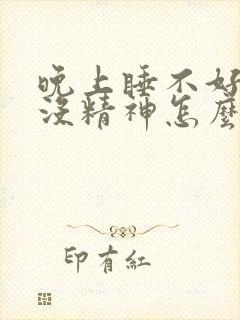 晚上睡不好
沒精神怎麼
印有紅